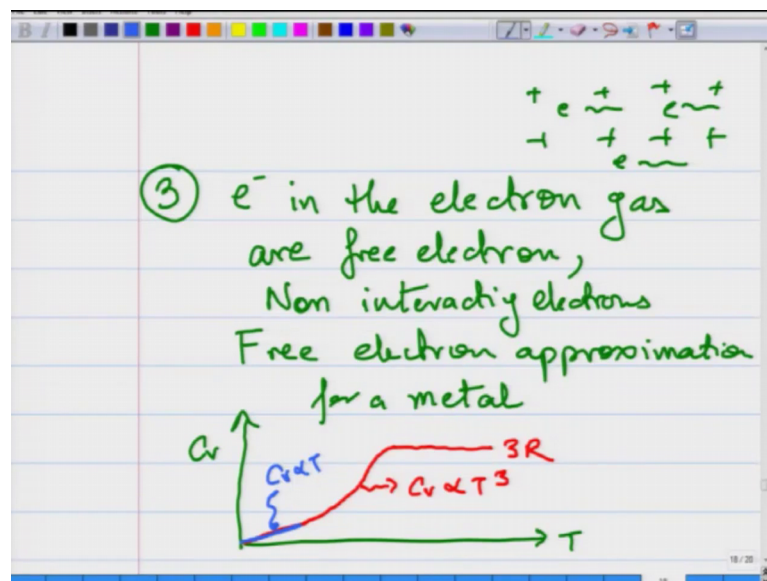 + e + + e +
+ + + +
e
③ e⁻ in the electron gas
are free electron,
Non interactig electrons
Free electron approximation
for a metal
Cv
Cv∝T
3R
Cv ∝ T³
T
18 / 20